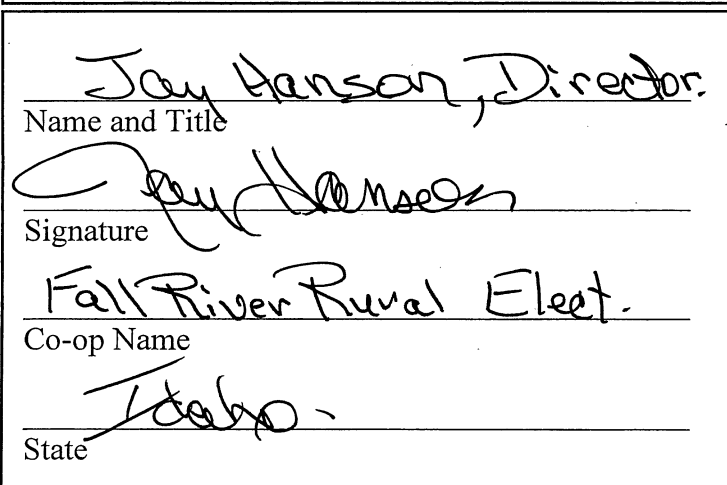 Jay Hanson, Director.
Name and Title
Jay Hansen
Signature
Fall River Rural Elect.
Co-op Name
Idaho.
State